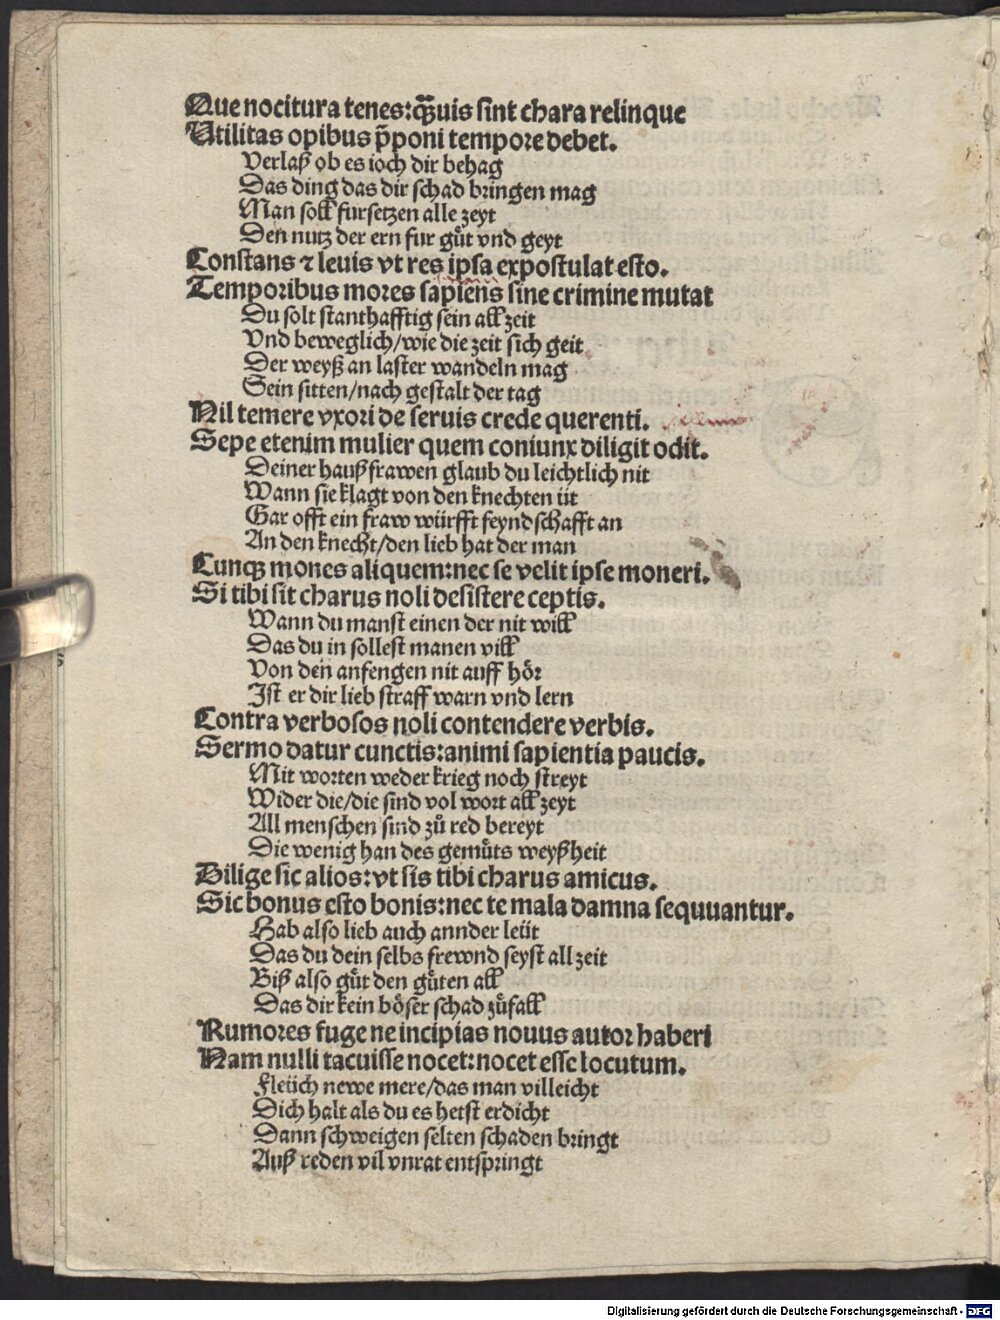 Que nocitura tenes: q̃ꝫuis sint chara relinque
Utilitas opibus p̄poni tempore debet.
Verlaß ob es ioch dir behag
Das ding das dir schad bringen mag
Man soll fursetzen alle zeyt
Den nutz der ern fur gůt vnd geyt
Constans ⁊ leuis vt res ipsa expostulat esto.
Temporibus mores sapiens sine crimine mutat
Du solt stanthafftig sein all zeit
Vnd beweglich/wie die zeit sich geit
Der weyß an laster wandeln mag
Sein sitten/nach gestalt der tag
Nil temere vxori de seruis crede querenti.
Sepe etenim mulier quem coniunx diligit odit.
Deiner haußfrawen glaub du leichtlich nit
Wann sie klagt von den knechten üt
Gar offt ein fraw würfft feyndschafft an
An den knecht/den lieb hat der man
Cunqꝫ mones aliquem: nec se velit ipse moneri.
Si tibi sit charus noli desistere ceptis.
Wann du manst einen der nit will
Das du in sollest manen vill
Von den anfengen nit auff hör
Ist er dir lieb straff warn vnd lern
Contra verbosos noli contendere verbis.
Sermo datur cunctis: animi sapientia paucis.
Mit worten weder krieg noch streyt
Wider die/die sind vol wort all zeyt
All menschen sind zů red bereyt
Die wenig han des gemůts weyßheit
Dilige sic alios: vt sis tibi charus amicus.
Sic bonus esto bonis: nec te mala damna sequuantur.
Hab also lieb auch annder leüt
Das du dein selbs frewnd seyst all zeit
Biß also gůt den gůten all
Das dir kein böser schad zůfall
Rumores fuge ne incipias nouus autor haberi
Nam nulli tacuisse nocet: nocet esse locutum.
Fleüch newe mere/das man villeicht
Dich halt als du es hetst erdicht
Dann schweigen selten schaden bringt
Auß reden vil vnrat entspringt
Digitalisierung gefördert durch die Deutsche Forschungsgemeinschaft - DFG